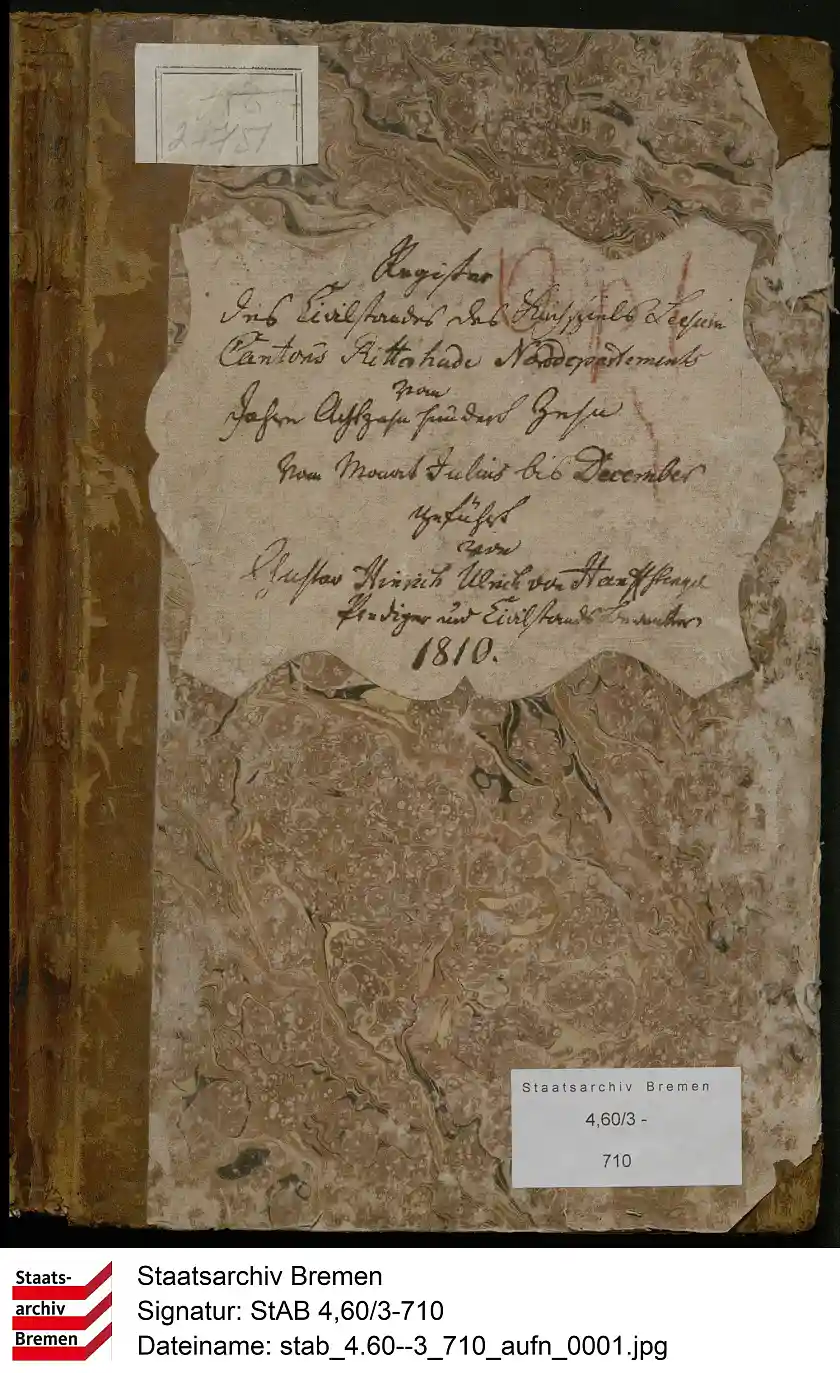 Register
des Civilstandes des Kirchspiels Lesum
Cantons Ritterhude Norddepartements
vom
Jahre Achtzehn hundert Zehn
Vom Monat Julius bis December
geführt
von
Gustav Hinrich Ulrich von Hanffstengel
Prediger und Civilstands Beamter
1810.
Staatsarchiv Bremen
4,60/3 -
710
Staats-
archiv
Bremen
Staatsarchiv Bremen
Signatur: StAB 4,60/3-710
Dateiname: stab_4.60--3_710_aufn_0001.jpg